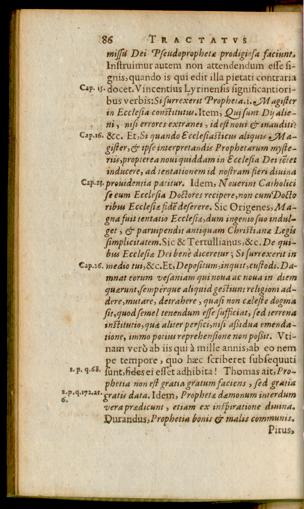 86 TRACTATVS
missu Dei Pseudoprophetæ prodigiosa faciunt.
Instruimur autem non attendendum esse si-
gnis, quando is qui edit illa pietati contraria
Cap. 15. docet. Vincentius Lyrinensis significantiori-
bus verbis: Si surrexerit Propheta .i. Magister
in Ecclesia constitutus. Item, Qui sunt Dij alie-
ni, nisi errores extranei, id est noni & inauditi
Cap. 16. &c. Et, Si quando Ecclesiasticus aliquis Ma-
gister, & ipse interpretandis Prophetarum myste-
riis, propterea noui quiddam in Ecclesia Dei
inducere, ad tentationem id nostram fieri diuina
Cap. 15. prouidentia patitur. Idem, Nouerint Catholici
se cum Ecclesia Doctores recipere, non cum Docto
ribus Ecclesiæ fidẽ deserere. Sic Origenes, Ma-
gna fuit tentatio Ecclesiæ, dum ingenio suo indul-
get, & paruipendit antiquam Christianæ Legis
simplicitatem. Sic & Tertullianus, &c. De qui-
bus Ecclesiæ Dei benè diceretur; Si surrexerit in
Cap. 26. medio tui, &c. Et, Depositum, inquit, custodi. Da-
mnat eorum vesaniam qui noua ac noua in diem
quærunt, semperque aliquid gestiunt religioni ad-
dere, mutare, detrahere, quasi non cæleste dogma
sit, quod semel tenendum esse sufficiat, sed terrena
institutio, quæ aliter perfici, nisi assidua emenda-
tione, immo potius reprehensione non possit. Vti-
nam verò ab iis qui à mille annis, ab eo nem
pe tempore, quo hæc scriberet subsequuti
2. p. q. 68. sunt, fides ei esset adhibita! Thomas ait, Pro-
phetia non est gratia gratum faciens, sed gratia
2. p. q. 172. ar. 6. gratis data. Idem, Prophetæ dæmonum interdum
vera prædicunt, etiam ex inspiratione diuina.
Durandus, Prophetia bonis & malis communis.
Pitus,